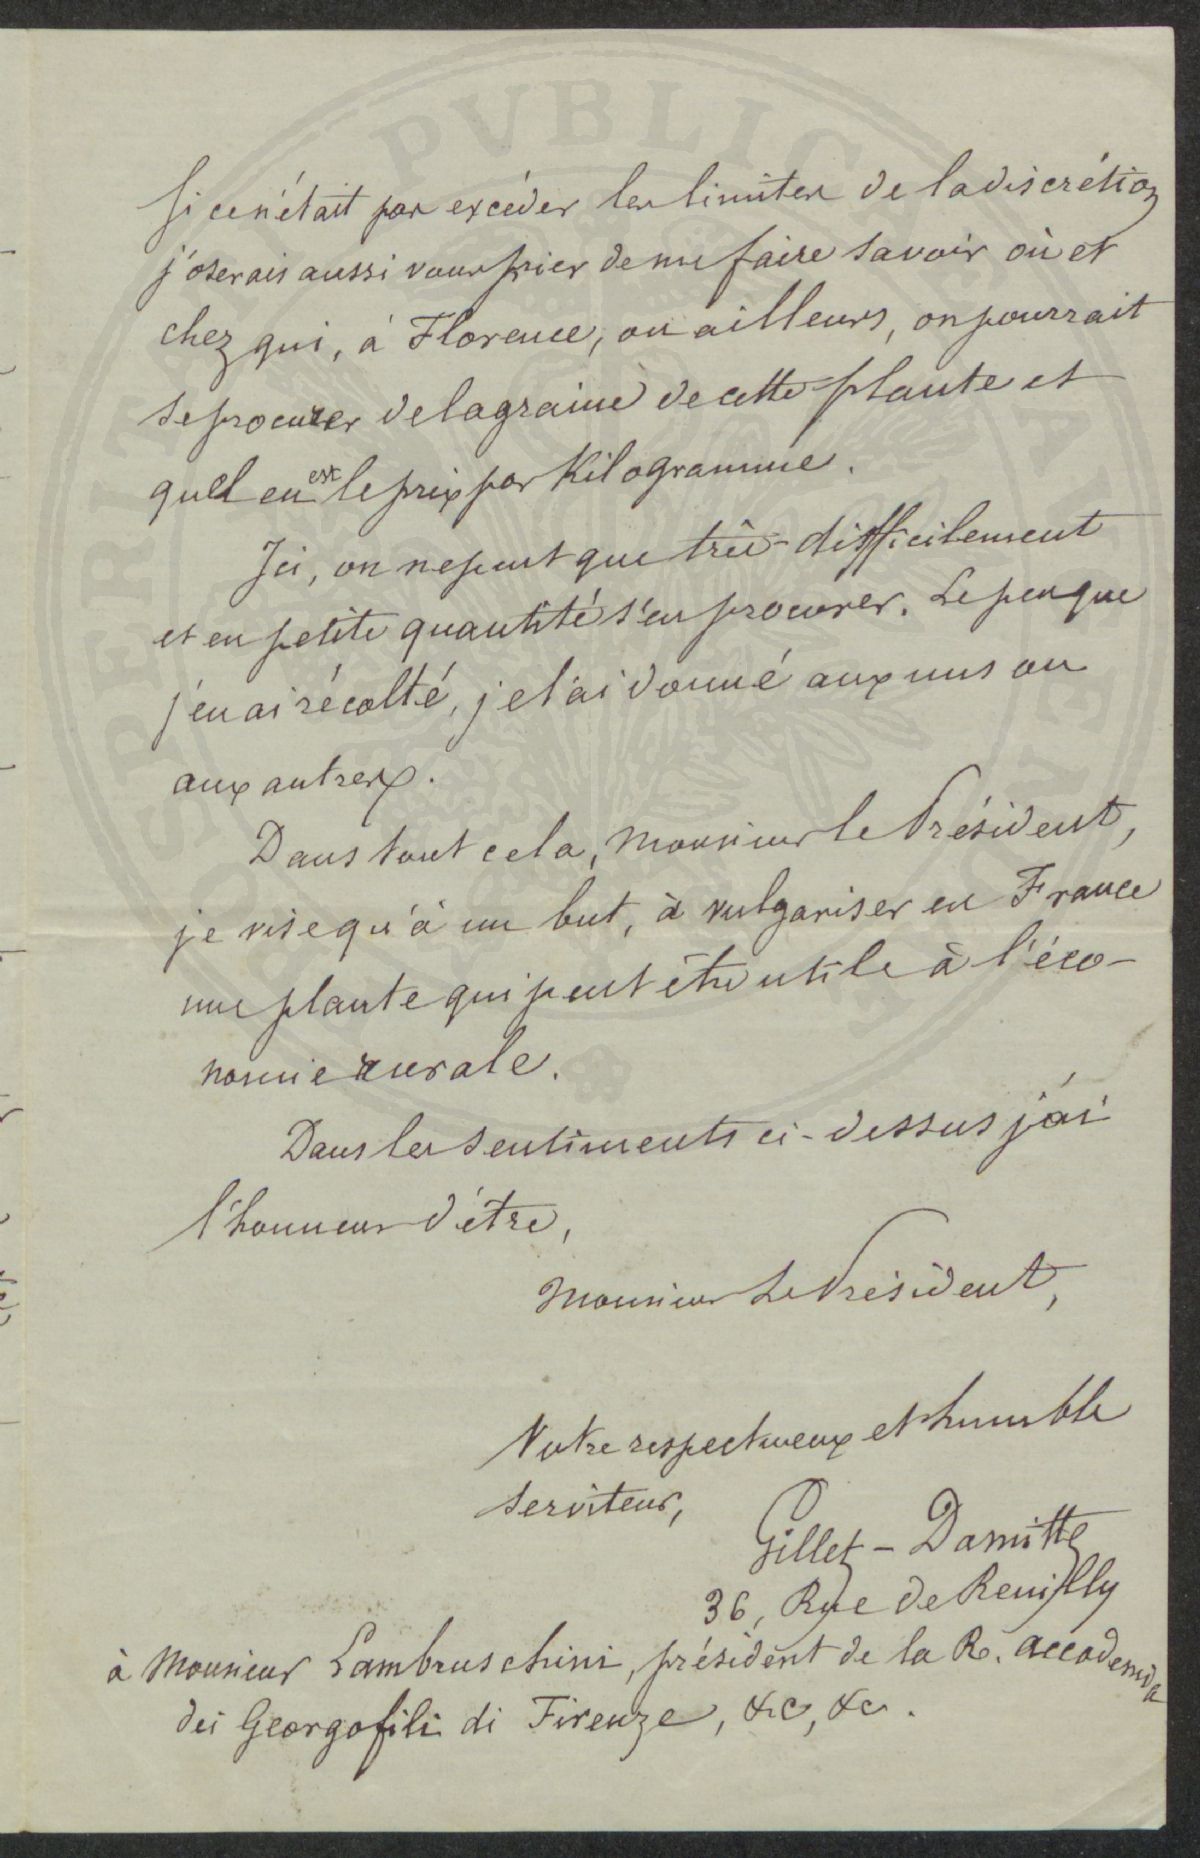 Si ce n'était pas excéder les limites de la discrétion
j'oserais aussi vous prier de me faire savoir où et
chez qui, à Florence, ou ailleurs, on pourrait
se procurer de la graine de cette plante et
quel en est le prix par Kilogramme.
Ici, on ne peut que très-difficilement
et en petite quantité s'en procurer. Le peu que
j'en ai récolté, je l'ai donné aux uns ou
aux autres.
Dans tout cela, Monsieur le Président,
je vise qu'à un but, à vulgariser en France
une plante qui peut être utile à l'éco-
nomie rurale.
Dans les sentiments ci-dessus j'ai
l'honneur d'être,
Monsieur Le Président,
Votre respectueux et humble
serviteur,
Gillet-Damitte
36, Rue de Reuilly
à Monsieur Lambruschini, président de la R. accademia
dei Georgofili di Firenze, &c, &c.